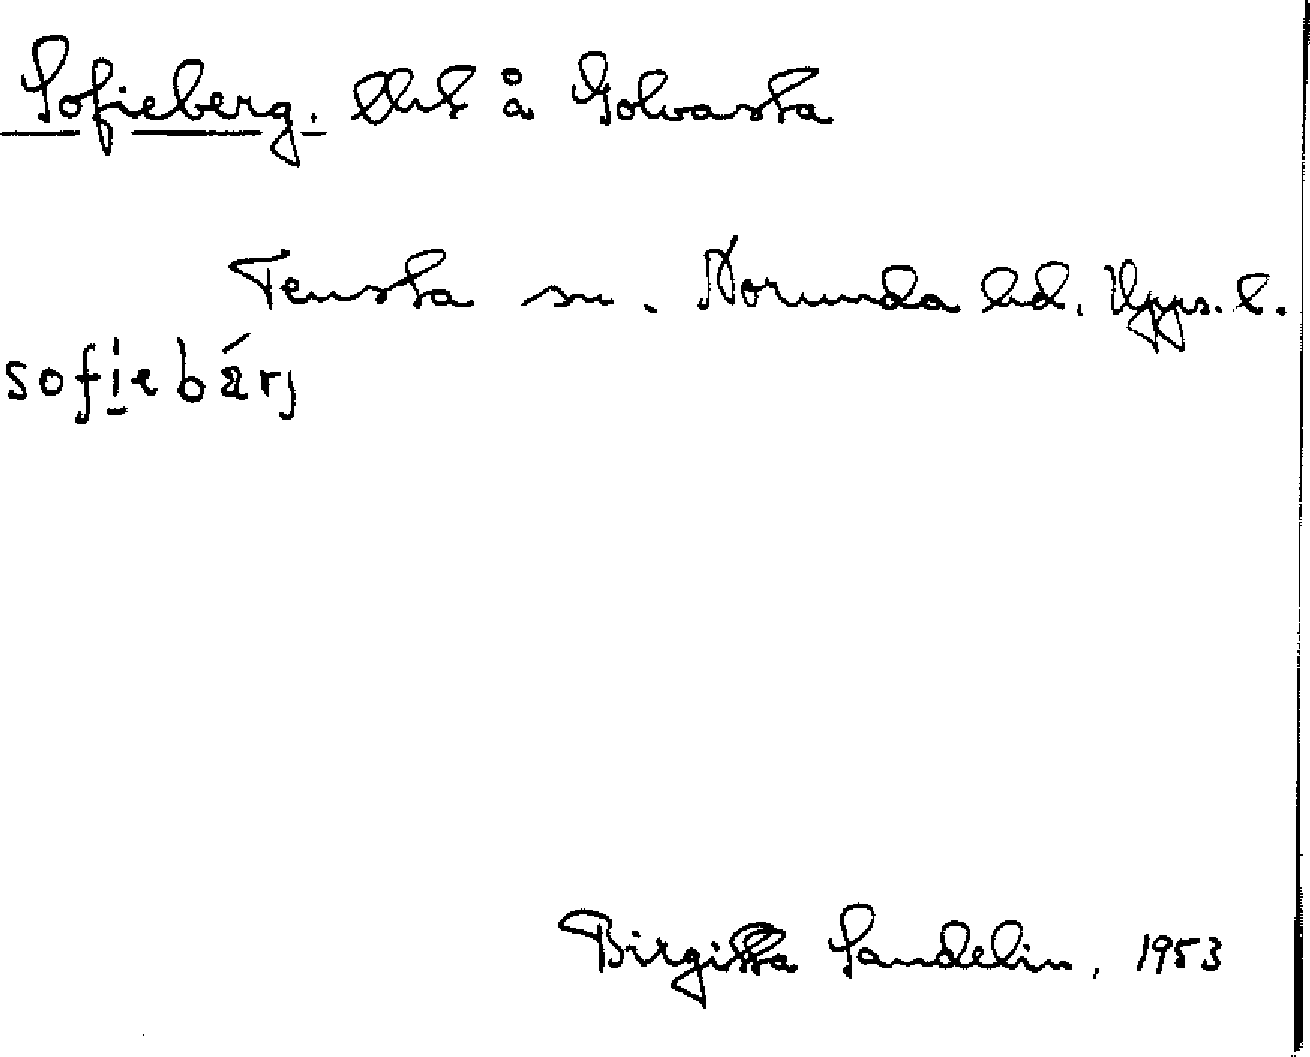 Sofieberg. Lht å Golvasta
Tensta sn. Norunda hd. Upps. l.
sofi̱ebä́rj
Birgitta Sandelin, 1953